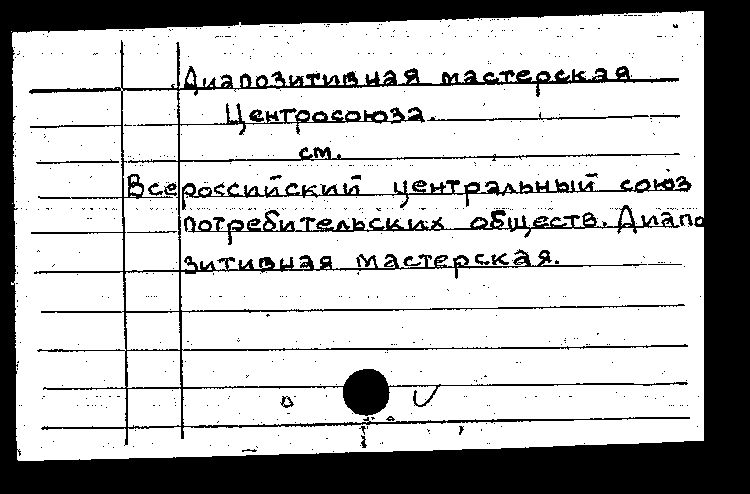 Диапозитивная мастерская
Центросоюза.
см.
Всероссийский центральный союз
потребительских обществ. Диапо
зитивная мастерская.